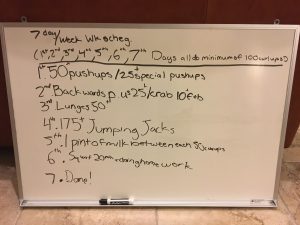 7 day/week Wk sheg.
(1st, 2nd, 3rd, 4th, 5th, 6th, 7th Days all do minimum of 100 curlups)
1st. 50 pushups / 25 special pushups
2nd Backwards p us 25/krab 10
3rd Lunges 50
4th. 175 Jumping Jacks
5th. 1 pint of milk between each 50 curups
6th. Squat 20 doing home work
7. Done!